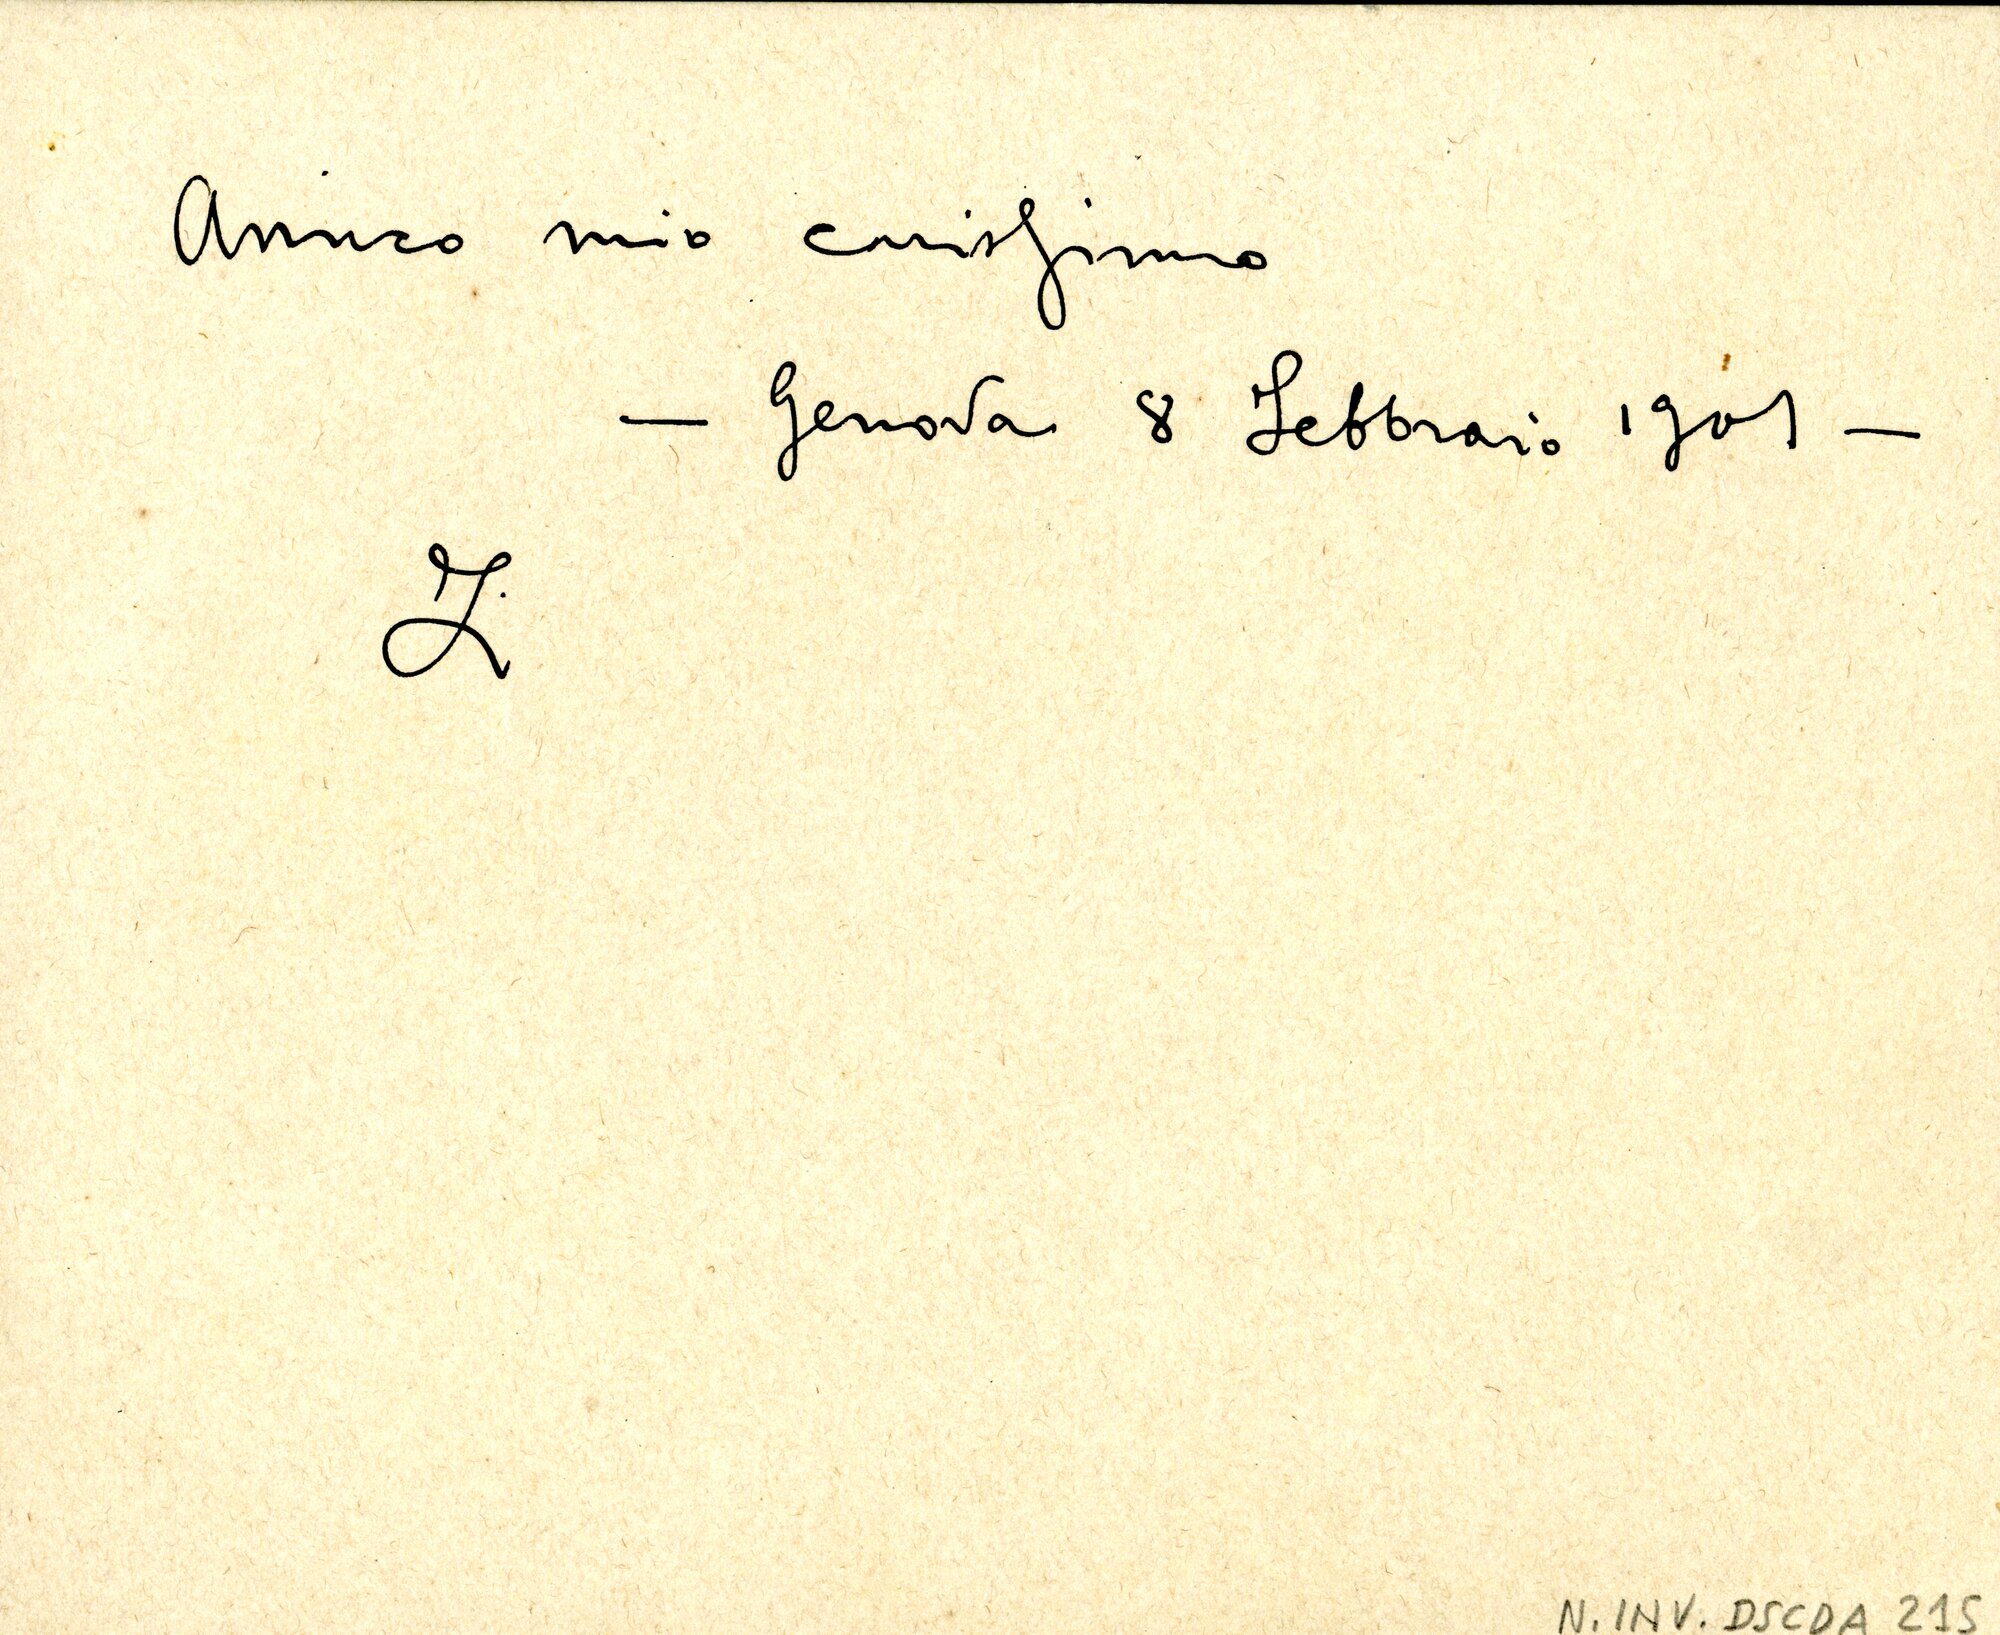 Amico mio carissimo
— Genova 8 Febbraio 1901 —
N. INV. DSCDA 215